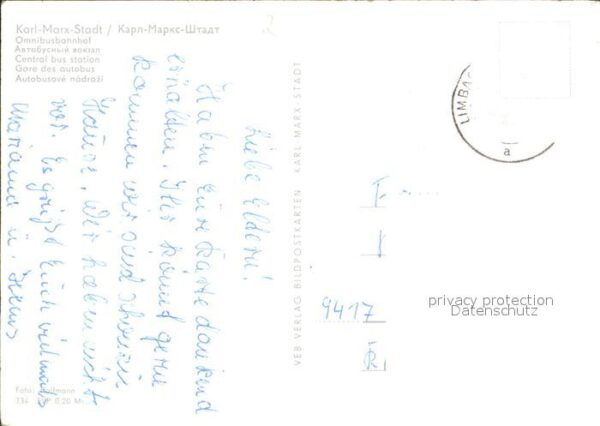 Karl-Marx-Stadt / Карл-Маркс-Штадт
Omnibusbahnhof
Автобусный вокзал
Central bus station
Gare des autobus
Autobusové nádraží
Liebe Eltern!
Haben Eure Karte dankend
erhalten. Ihr könnt gerne
kommen wir sind
Hause. Wir haben nicht
vor. Es grüßt Euch vielmals
u.
734 0,20
VEB VERLAG BILDPOSTKARTEN KARL-MARX-STADT
LIMBAC
a
9417
privacy protection
Datenschutz